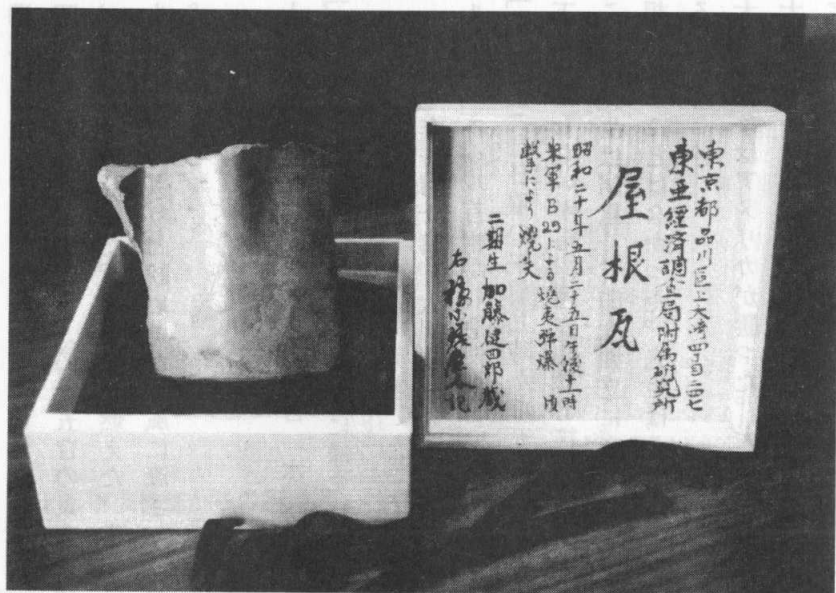 東京都品川區上大崎四丁目二四七
東亜經済調査局附属研究所
屋根瓦
昭和二十年五月二十五日午後十一時
米軍B29による焼夷弾爆 頃
撃により焼失
二期生 加藤健四郎蔵
右